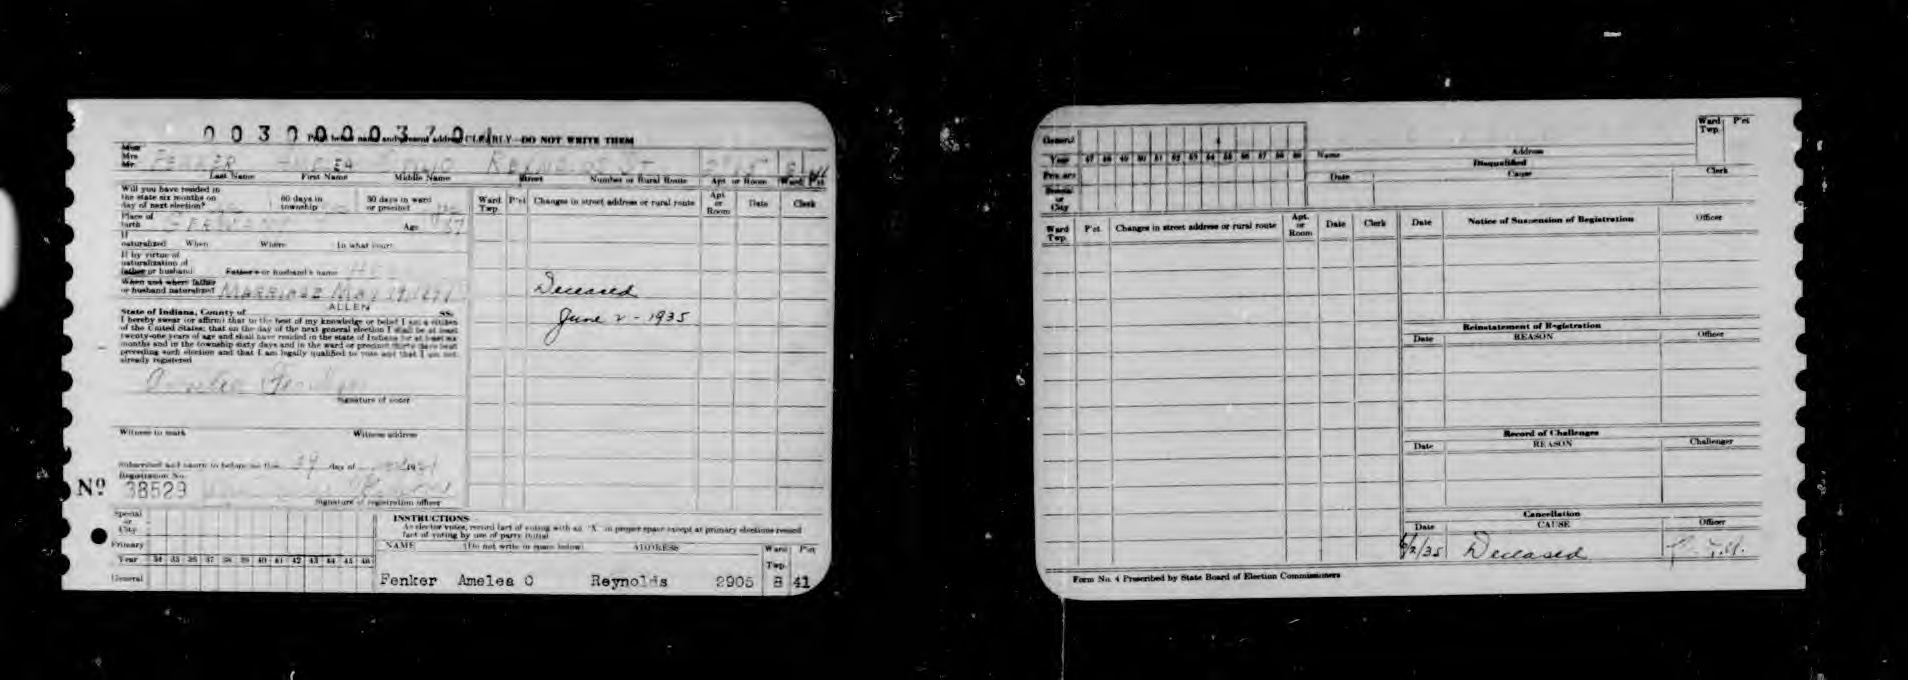 0 0 3 0 0 0 0 3 7 0 1
CLEARLY—DO NOT WRITE THEM
Miss
Mrs
Mr.
FENKER AMELEA OHIO REYNOLDS ST 2905 8 41
Last Name First Name Middle Name Street Number or Rural Route Apt or Room Ward P'ct
Will you have resided in
the state six months on
day of next election?
60 days in
township
30 days in ward
or precinct
Place of
birth GERMANY Age 57
If
naturalized When Where In what court
If by virtue of
naturalization of
father or husband Father's or husband's name
When and where father
or husband naturalized MARRIAGE MAY
ALLEN
State of Indiana, County of SS:
I hereby swear (or affirm) that to the best of my knowledge or belief I am a citizen
of the United States; that on the day of the next general election I shall be at least
twenty-one years of age and shall have resided in the state of Indiana for at least six
months and in the township sixty days and in the ward or precinct thirty days next
preceding such election and that I am legally qualified to vote and that I am not
already registered
Signature of voter
Witness to mark Witness address
Subscribed and sworn to before me this 29 day of
Registration No.
Nº 38529
Signature of registration officer
Ward
Twp. P'ct Changes in street address or rural route Apt.
or
Room Date Clerk
Deceased
June 2 - 1935
Special
or
City
Primary
Year 34 35 36 37 38 39 40 41 42 43 44 45 46
General
INSTRUCTIONS
As elector votes, record fact of voting with an "X" in proper space except at primary elections record
fact of voting by use of party initial
NAME (Do not write in space below) ADDRESS Ward
Twp. P'ct
Fenker Amelea O Reynolds 2905 8 41
General
Year 47 48 49 50 51 52 53 54 55 56 57 58 59
Primary
Special
or
City
Name Address Ward
Twp. P'ct
Disqualified
Date Cause Clerk
Ward
Twp. P'ct. Changes in street address or rural route Apt.
or
Room Date Clerk
Date Notice of Suspension of Registration Officer
Reinstatement of Registration
Date REASON Officer
Record of Challenges
Date REASON Challenger
Cancellation
Date CAUSE Officer
6/2/35 Deceased
Form No. 4 Prescribed by State Board of Election Commissioners